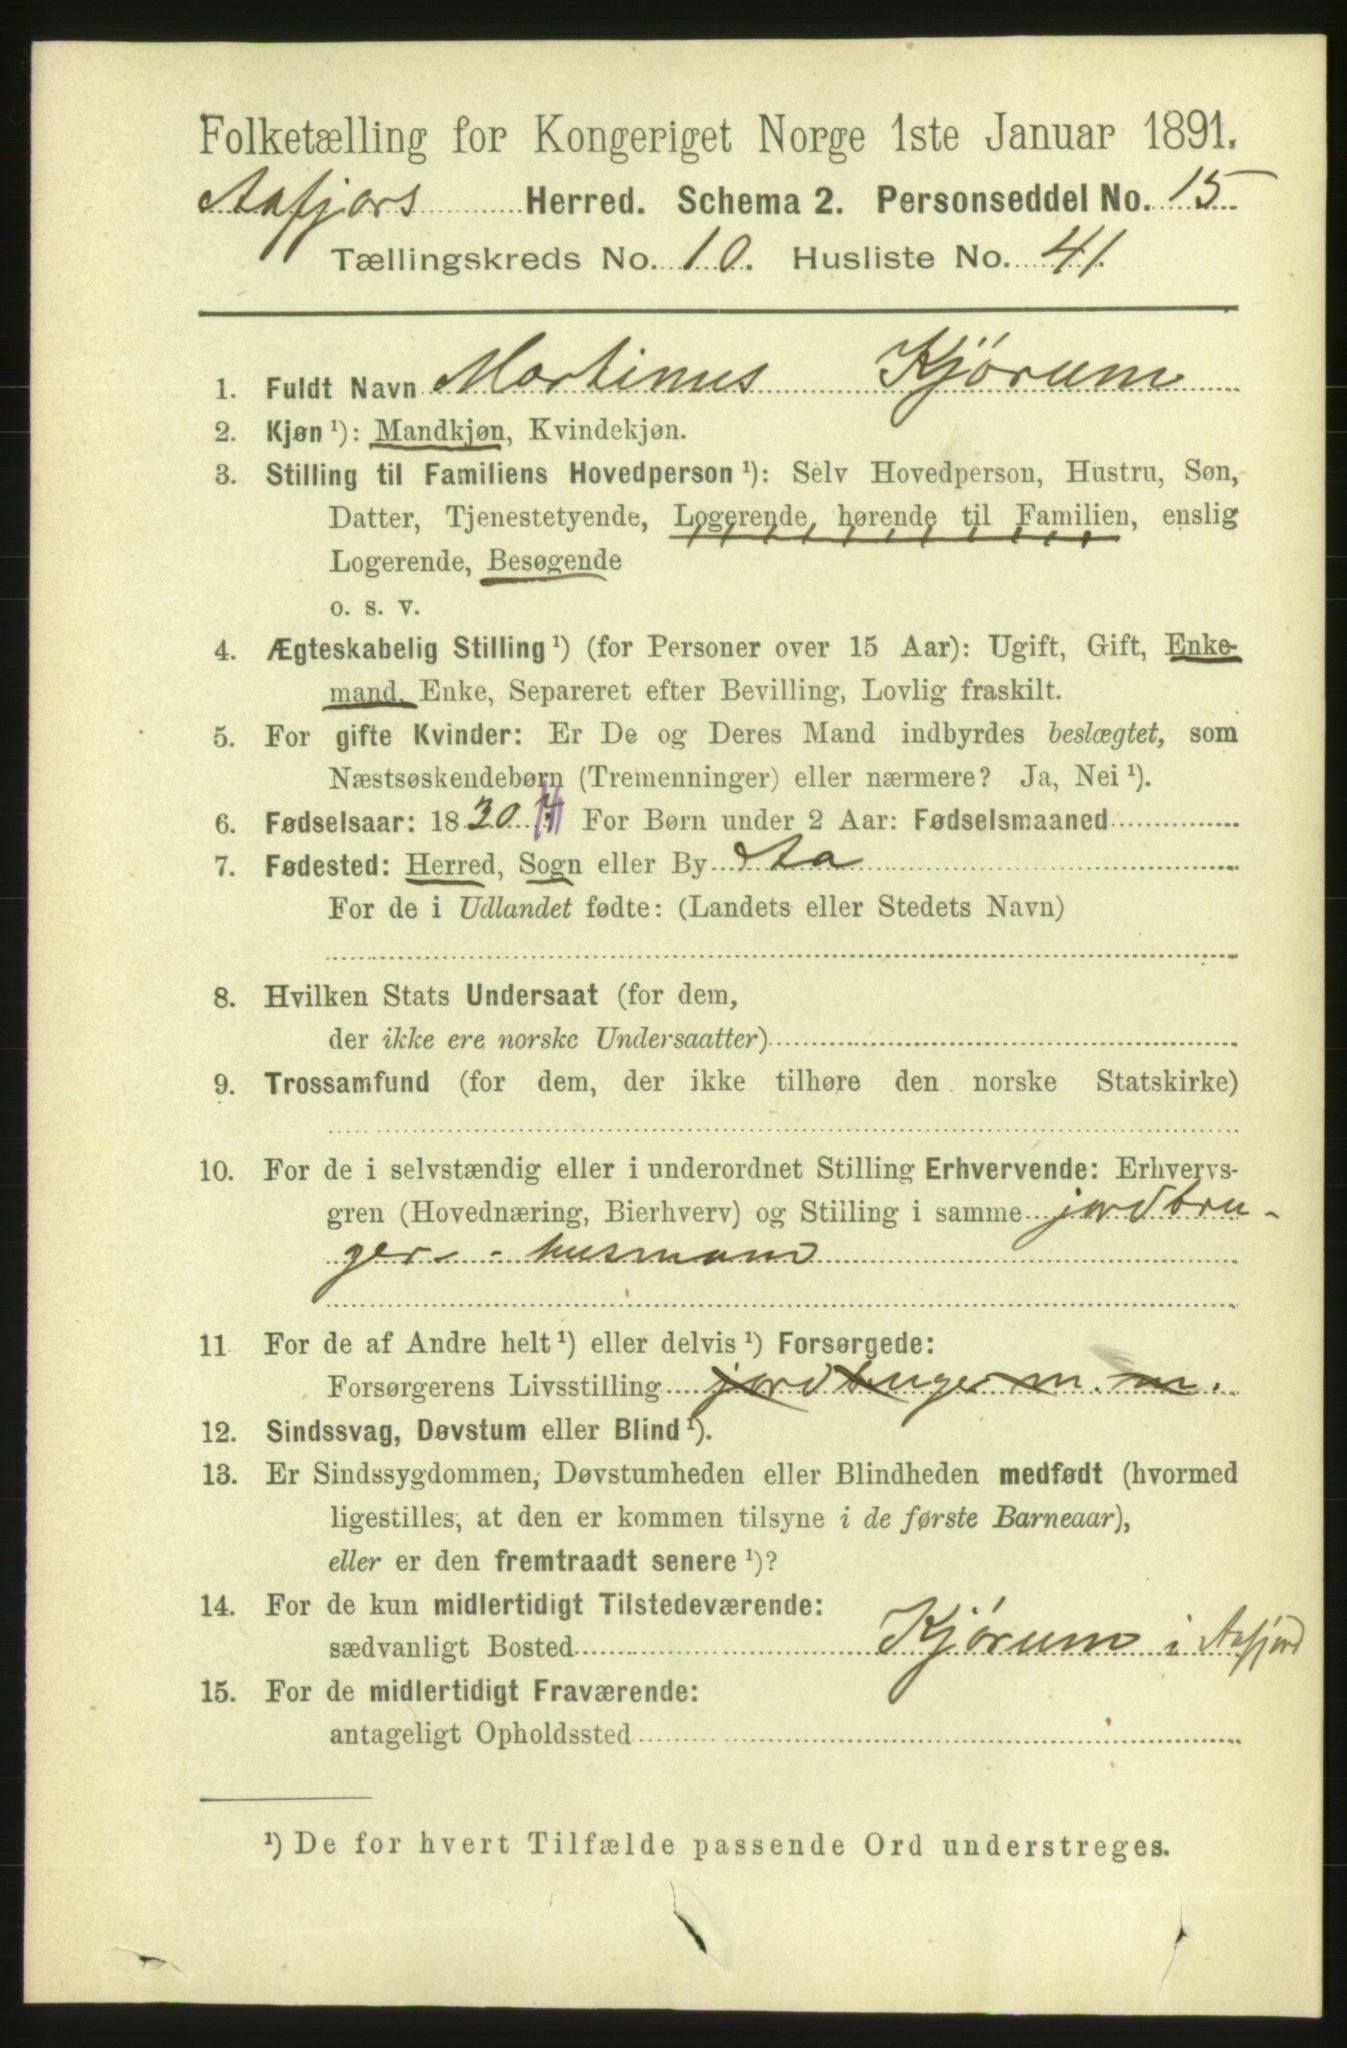 Folketælling for Kongeriget Norge 1ste Januar 1891.
Aafjord Herred. Schema 2. Personseddel No. 15
Tællingskreds No. 10. Husliste No. 41.
1. Fuldt Navn Martinus Kjørum
2. Kjøn ¹): Mandkjøn, Kvindekjøn.
3. Stilling til Familiens Hovedperson ¹): Selv Hovedperson, Hustru, Søn,
Datter, Tjenestetyende, Logerende, hørende til Familien, enslig
Logerende, Besøgende
o. s. v.
4. Ægteskabelig Stilling ¹) (for Personer over 15 Aar): Ugift, Gift, Enke-
mand, Enke, Separeret efter Bevilling, Lovlig fraskilt.
5. For gifte Kvinder: Er De og Deres Mand indbyrdes beslægtet, som
Næstsøskendebørn (Tremenninger) eller nærmere? Ja, Nei ¹).
6. Fødselsaar: 1830 For Børn under 2 Aar: Fødselsmaaned
7. Fødested: Herred, Sogn eller By Aa
For de i Udlandet fødte: (Landets eller Stedets Navn)
8. Hvilken Stats Undersaat (for dem,
der ikke ere norske Undersaatter)
9. Trossamfund (for dem, der ikke tilhøre den norske Statskirke)
10. For de i selvstændig eller i underordnet Stilling Erhvervende: Erhvervs-
gren (Hovednæring, Bierhverv) og Stilling i samme jordbru-
ger - husmand
11 For de af Andre helt ¹) eller delvis ¹) Forsørgede:
Forsørgerens Livsstilling jordbruger m. m.
12. Sindssvag, Døvstum eller Blind ¹).
13. Er Sindssygdommen, Døvstumheden eller Blindheden medfødt (hvormed
ligestilles, at den er kommen tilsyne i de første Barneaar),
eller er den fremtraadt senere ¹)?
14. For de kun midlertidigt Tilstedeværende:
sædvanligt Bosted Kjørum i Aafjord
15. For de midlertidigt Fraværende:
antageligt Opholdssted
¹) De for hvert Tilfælde passende Ord understreges.